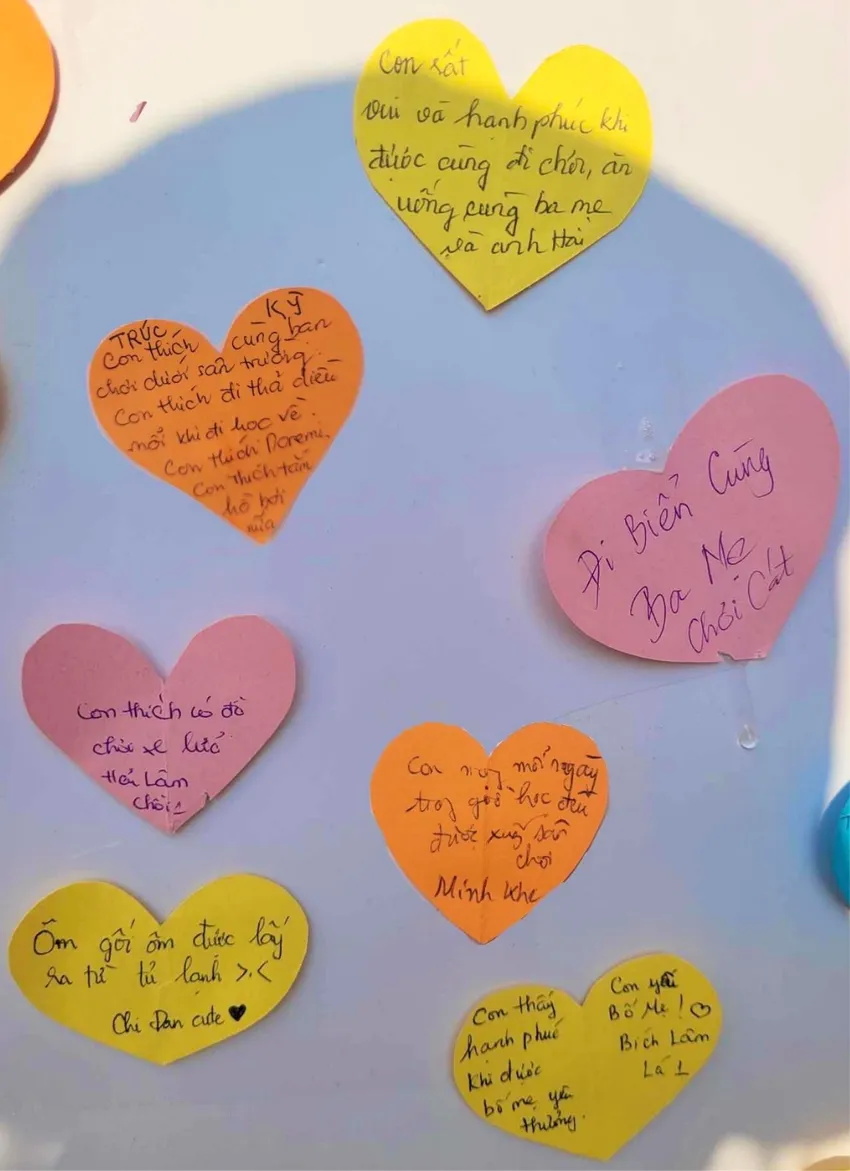 Con rất
vui và hạnh phúc khi
được cùng đi chơi, ăn
uống cùng ba mẹ
và anh Hai
TRÚC KỲ
Con thích cùng bạn
chơi dưới sân trường.
Con thích đi thả diều
mỗi khi đi học về.
Con thích Doremi,
Con thích tắm
hồ bơi
nữa
Đi Biển Cùng
Ba Mẹ
Chơi Cát
Con thích có đồ
chơi xe lửa
Hải Lâm
Con mỗi ngày
trong giờ học đều
được xuống sân
chơi
Minh Khe
Ôm gối ôm được lấy
ra từ tủ lạnh >.<
Chi Đan cute ♥
Con thấy
hạnh phúc
khi được
bố mẹ yêu
thương.
Con yêu
Bố Mẹ! ♡
Bích Lâm
Lá 1